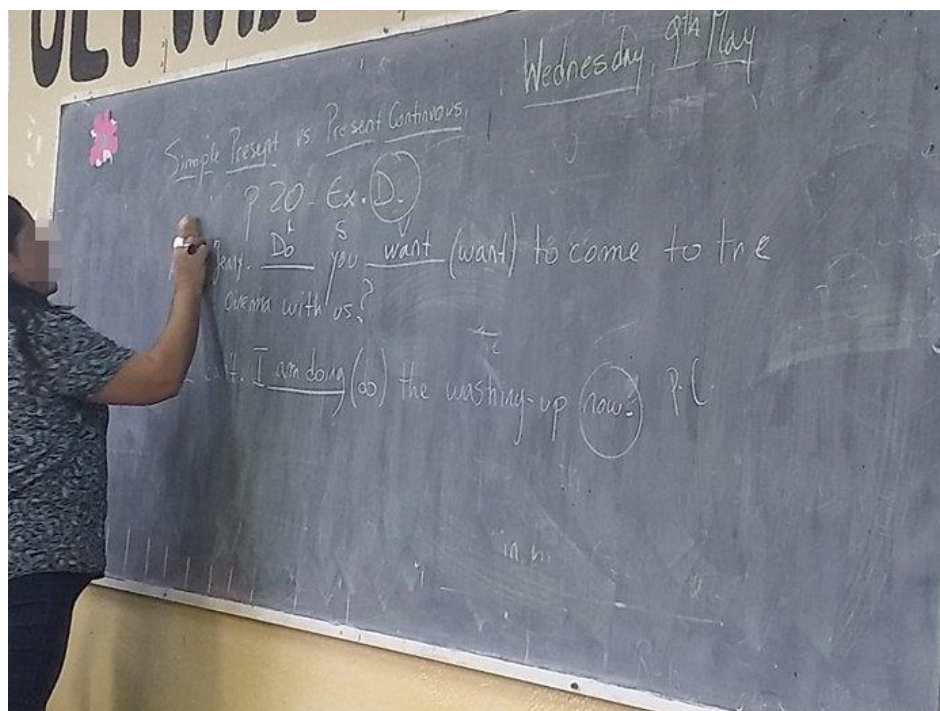 Wednesday, 9th May
Simple Present vs. Present Continuous.
p 20 - Ex. D.
Jenny. Do you want (want) to come to the
cinema with us?
I am doing (do) the washing-up now. P.C